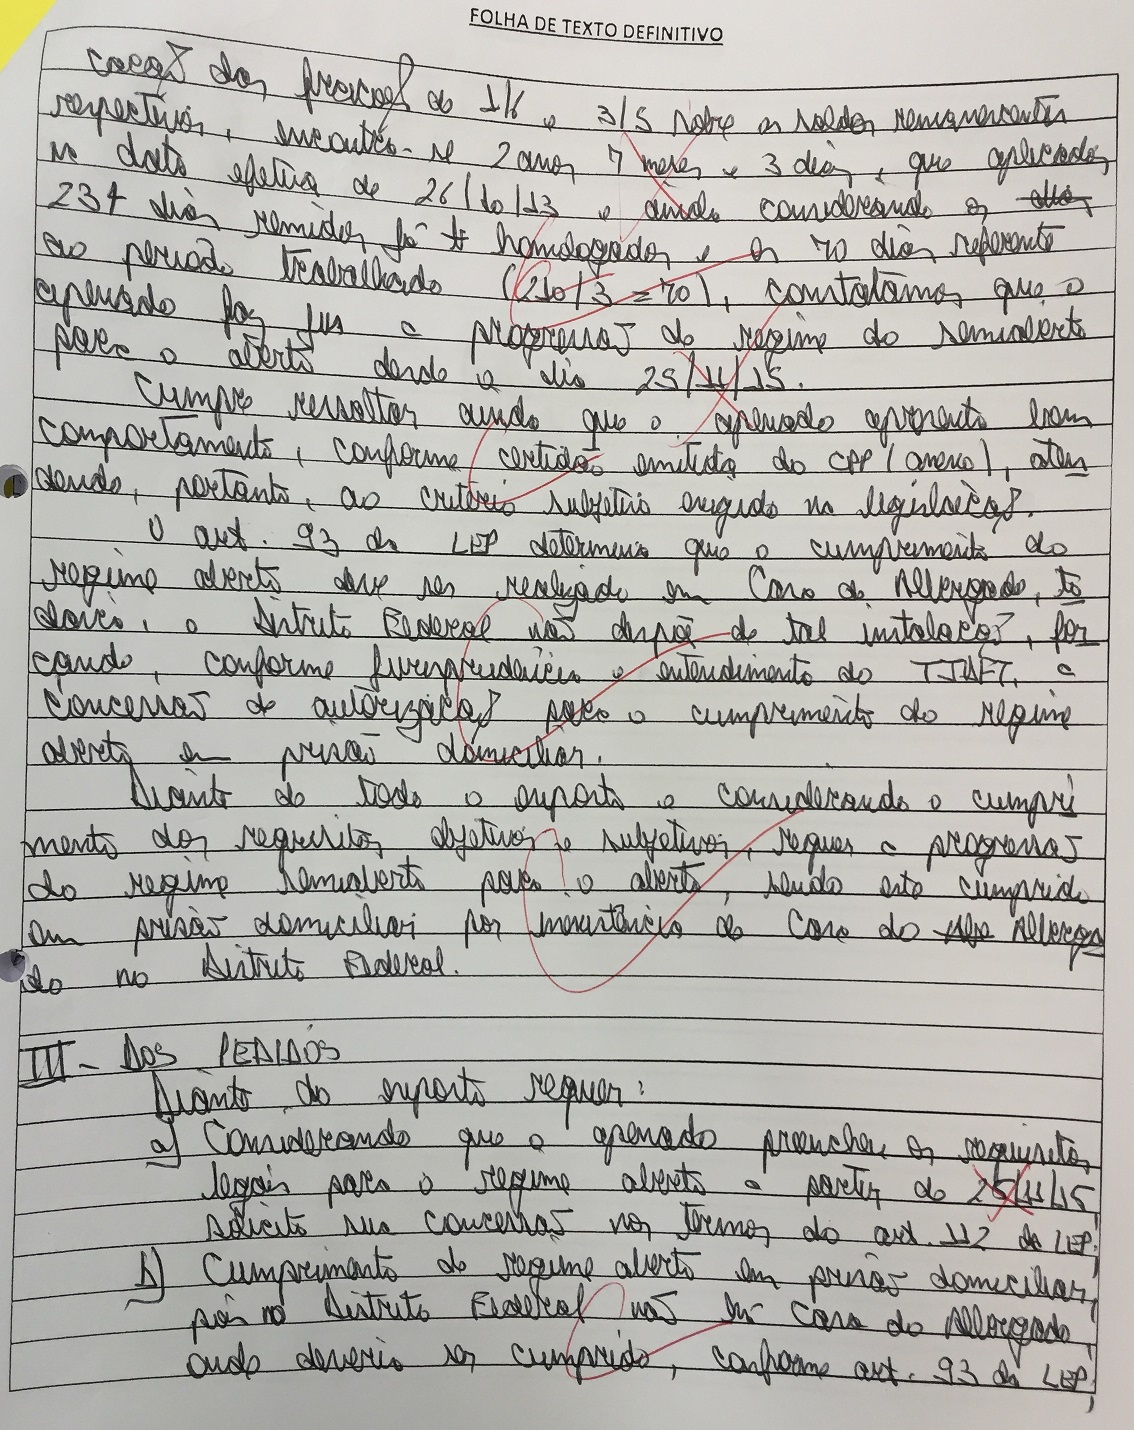 FOLHA DE TEXTO DEFINITIVO
cação das frações de 1/6 e 3/5 sobre os saldos remanescentes
respectivos, encontra-se 2 anos 7 meses e 3 dias, que aplicados
na data efetiva de 26/10/13 e ainda considerando os dias
237 dias remidos já homologados e os 70 dias referente
ao período trabalhado (210/3 = 70), constatamos que o
apenado faz jus a progressão do regime do semiaberto
para o aberto desde o dia 25/11/15.
Cumpre ressaltar ainda que o apenado apresenta bom
comportamento, conforme certidão emitida do CPP (anexo), aten
dendo, portanto, ao critério subjetivo exigido na legislação.
O art. 93 da LEP determina que o cumprimento do
regime aberto deve ser realizado em Casa de Albergado, to
davia, o Distrito Federal não dispõe de tal instalação, for
çando, conforme jurisprudência e entendimento do TJDFT, a
concessão de autorização para o cumprimento do regime
aberto em prisão domiciliar.
Diante de todo o exposto e considerando o cumpri
mento dos requisitos objetivos e subjetivos, requer a progressão
do regime semiaberto para o aberto, sendo este cumprido
em prisão domiciliar por inexistência de Casa do Alberga
do no Distrito Federal.
III - DOS PEDIDOS
Diante do exposto requer:
a) Considerando que o apenado preenche os requisitos
legais para o regime aberto a partir de 25/11/15
solicito sua concessão nos termos do art. 112 da LEP;
b) Cumprimento do regime aberto em prisão domiciliar,
pois no Distrito Federal não há Casa do Albergado
onde deveria ser cumprido, conforme art. 93 da LEP;